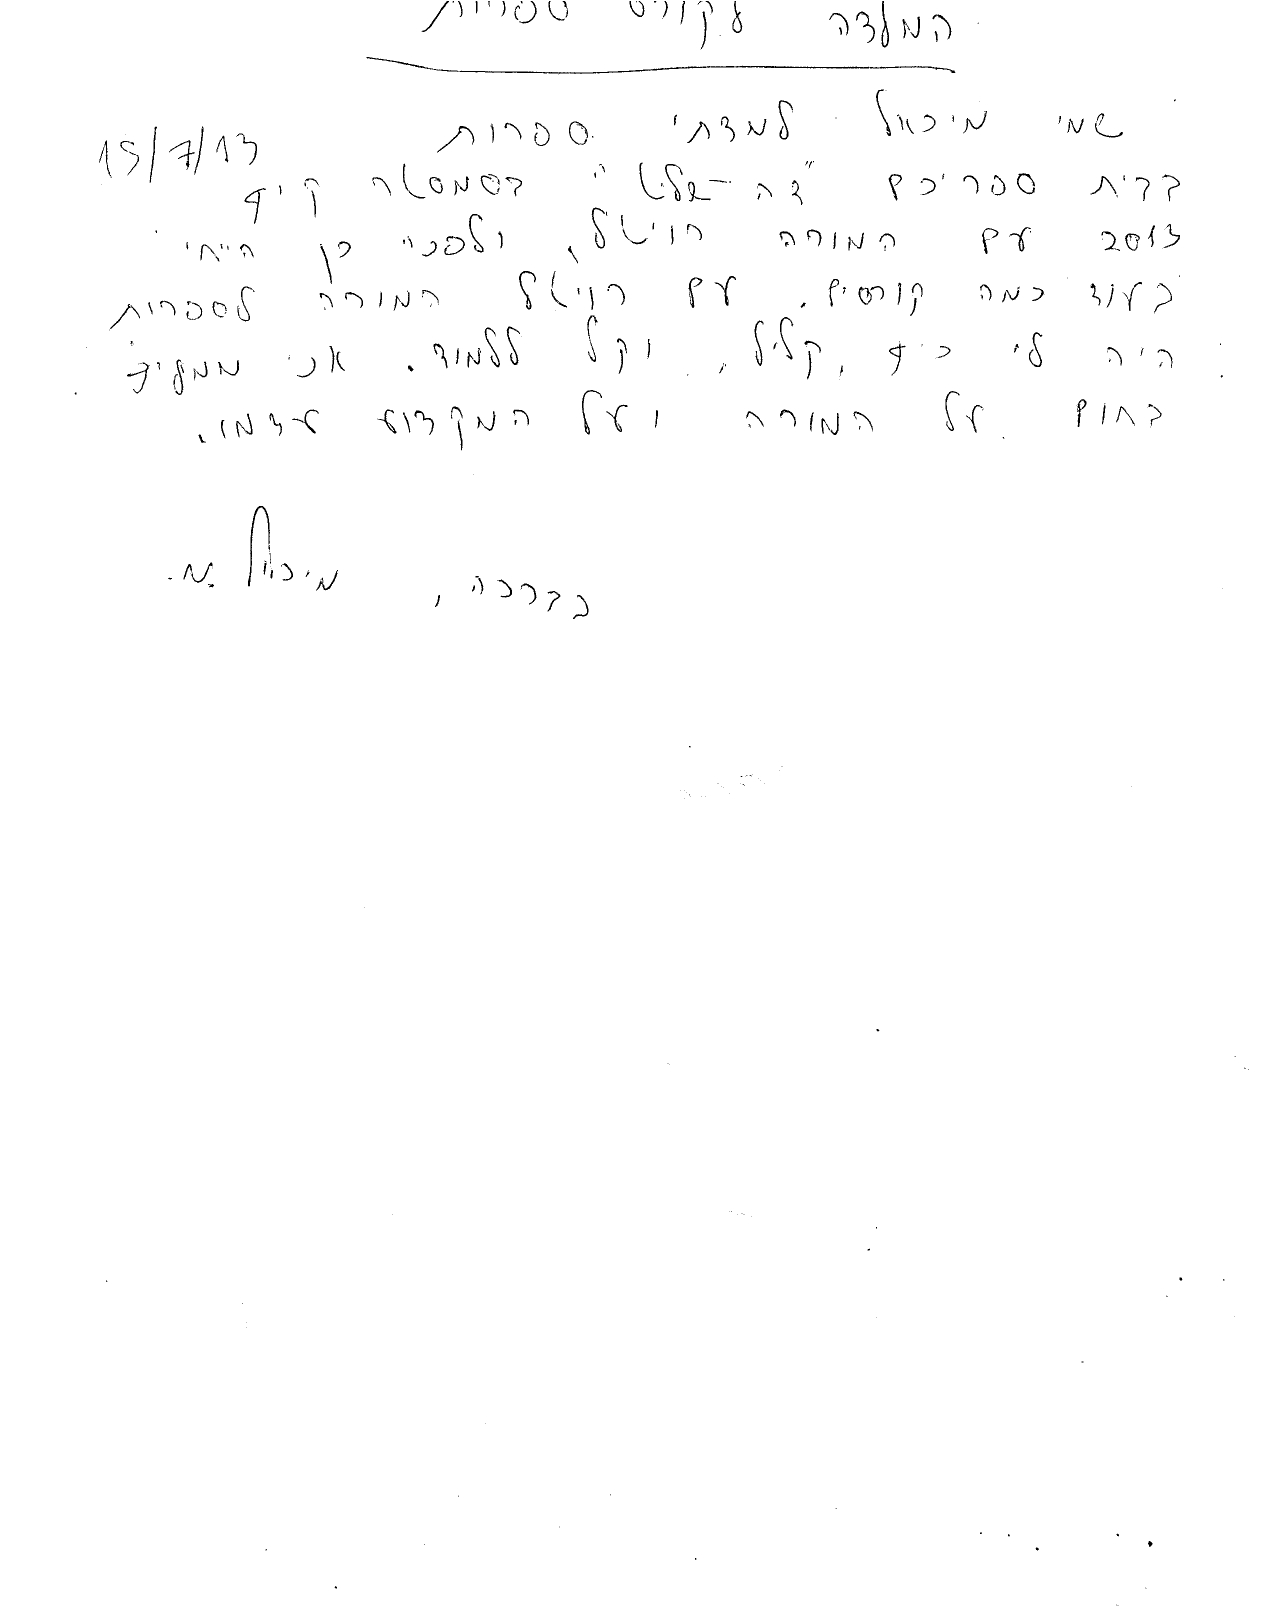 המלצה לקורס ספרות
15/7/13
שמי מיכאל למדתי ספרות
בבית ספריכם "דה-שליט" בסמסטר קיץ
2013 עם המורה רויטל, ולפניי כן הייתי
בעוד כמה קורסים. עם רויטל המורה לספרות
היה לי כיף, קליל, וקל ללמוד. אני ממליץ
בחום על המורה ועל המקצוע עצמו.
בברכה, מיכאל מ.